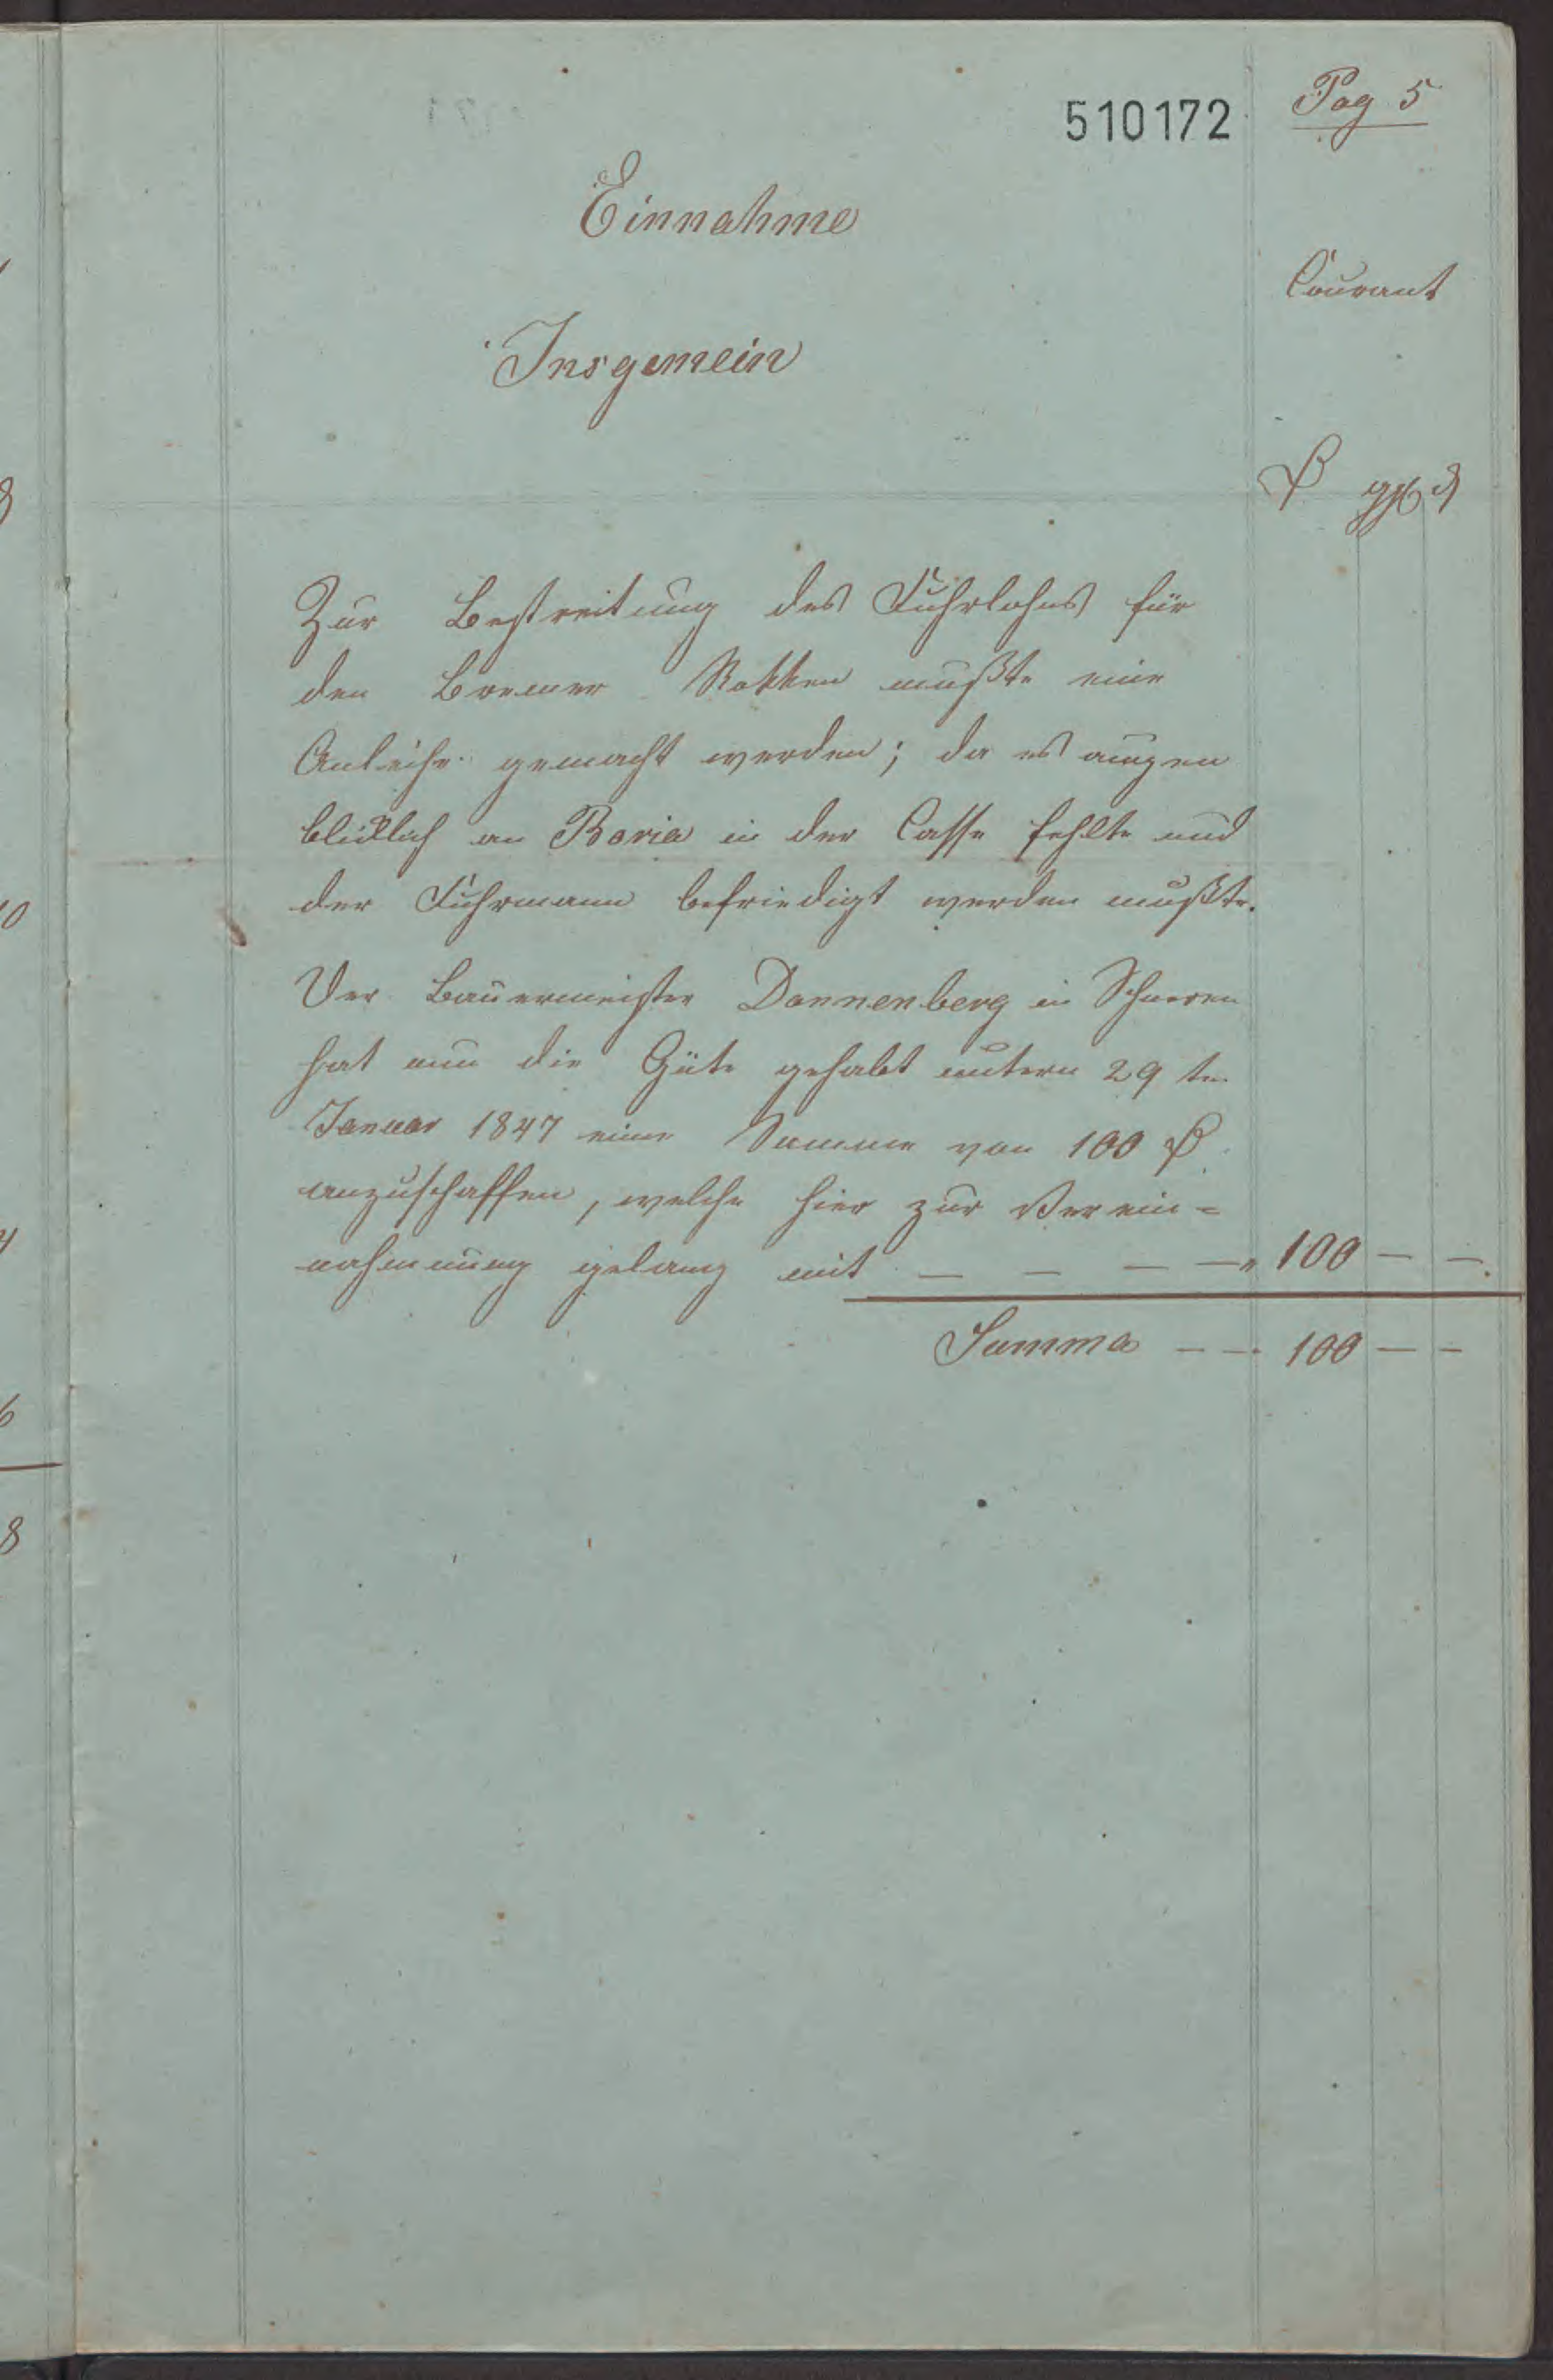 510172
Pag 5
Einnahme
Courant
Insgemein
₰ ggl ₰
Zur Bestreitung des Fuhrlohns für
den Bremer Rokken mußte eine
Anleihe gemacht werden; da es augen
blicklich an Baria in der Casse fehlte und
der Fuhrmann befriedigt werden mußte.
Der Bauermeister Dannenberg in Schneren
hat nun die Güte gehabt untern 29 ten
Januar 1847 eine Summe von 100 ₰
anzuschaffen, welche hier zur Verein=
nahmung gelang mit — — — — 100 — —.
Summa — — 100 — —